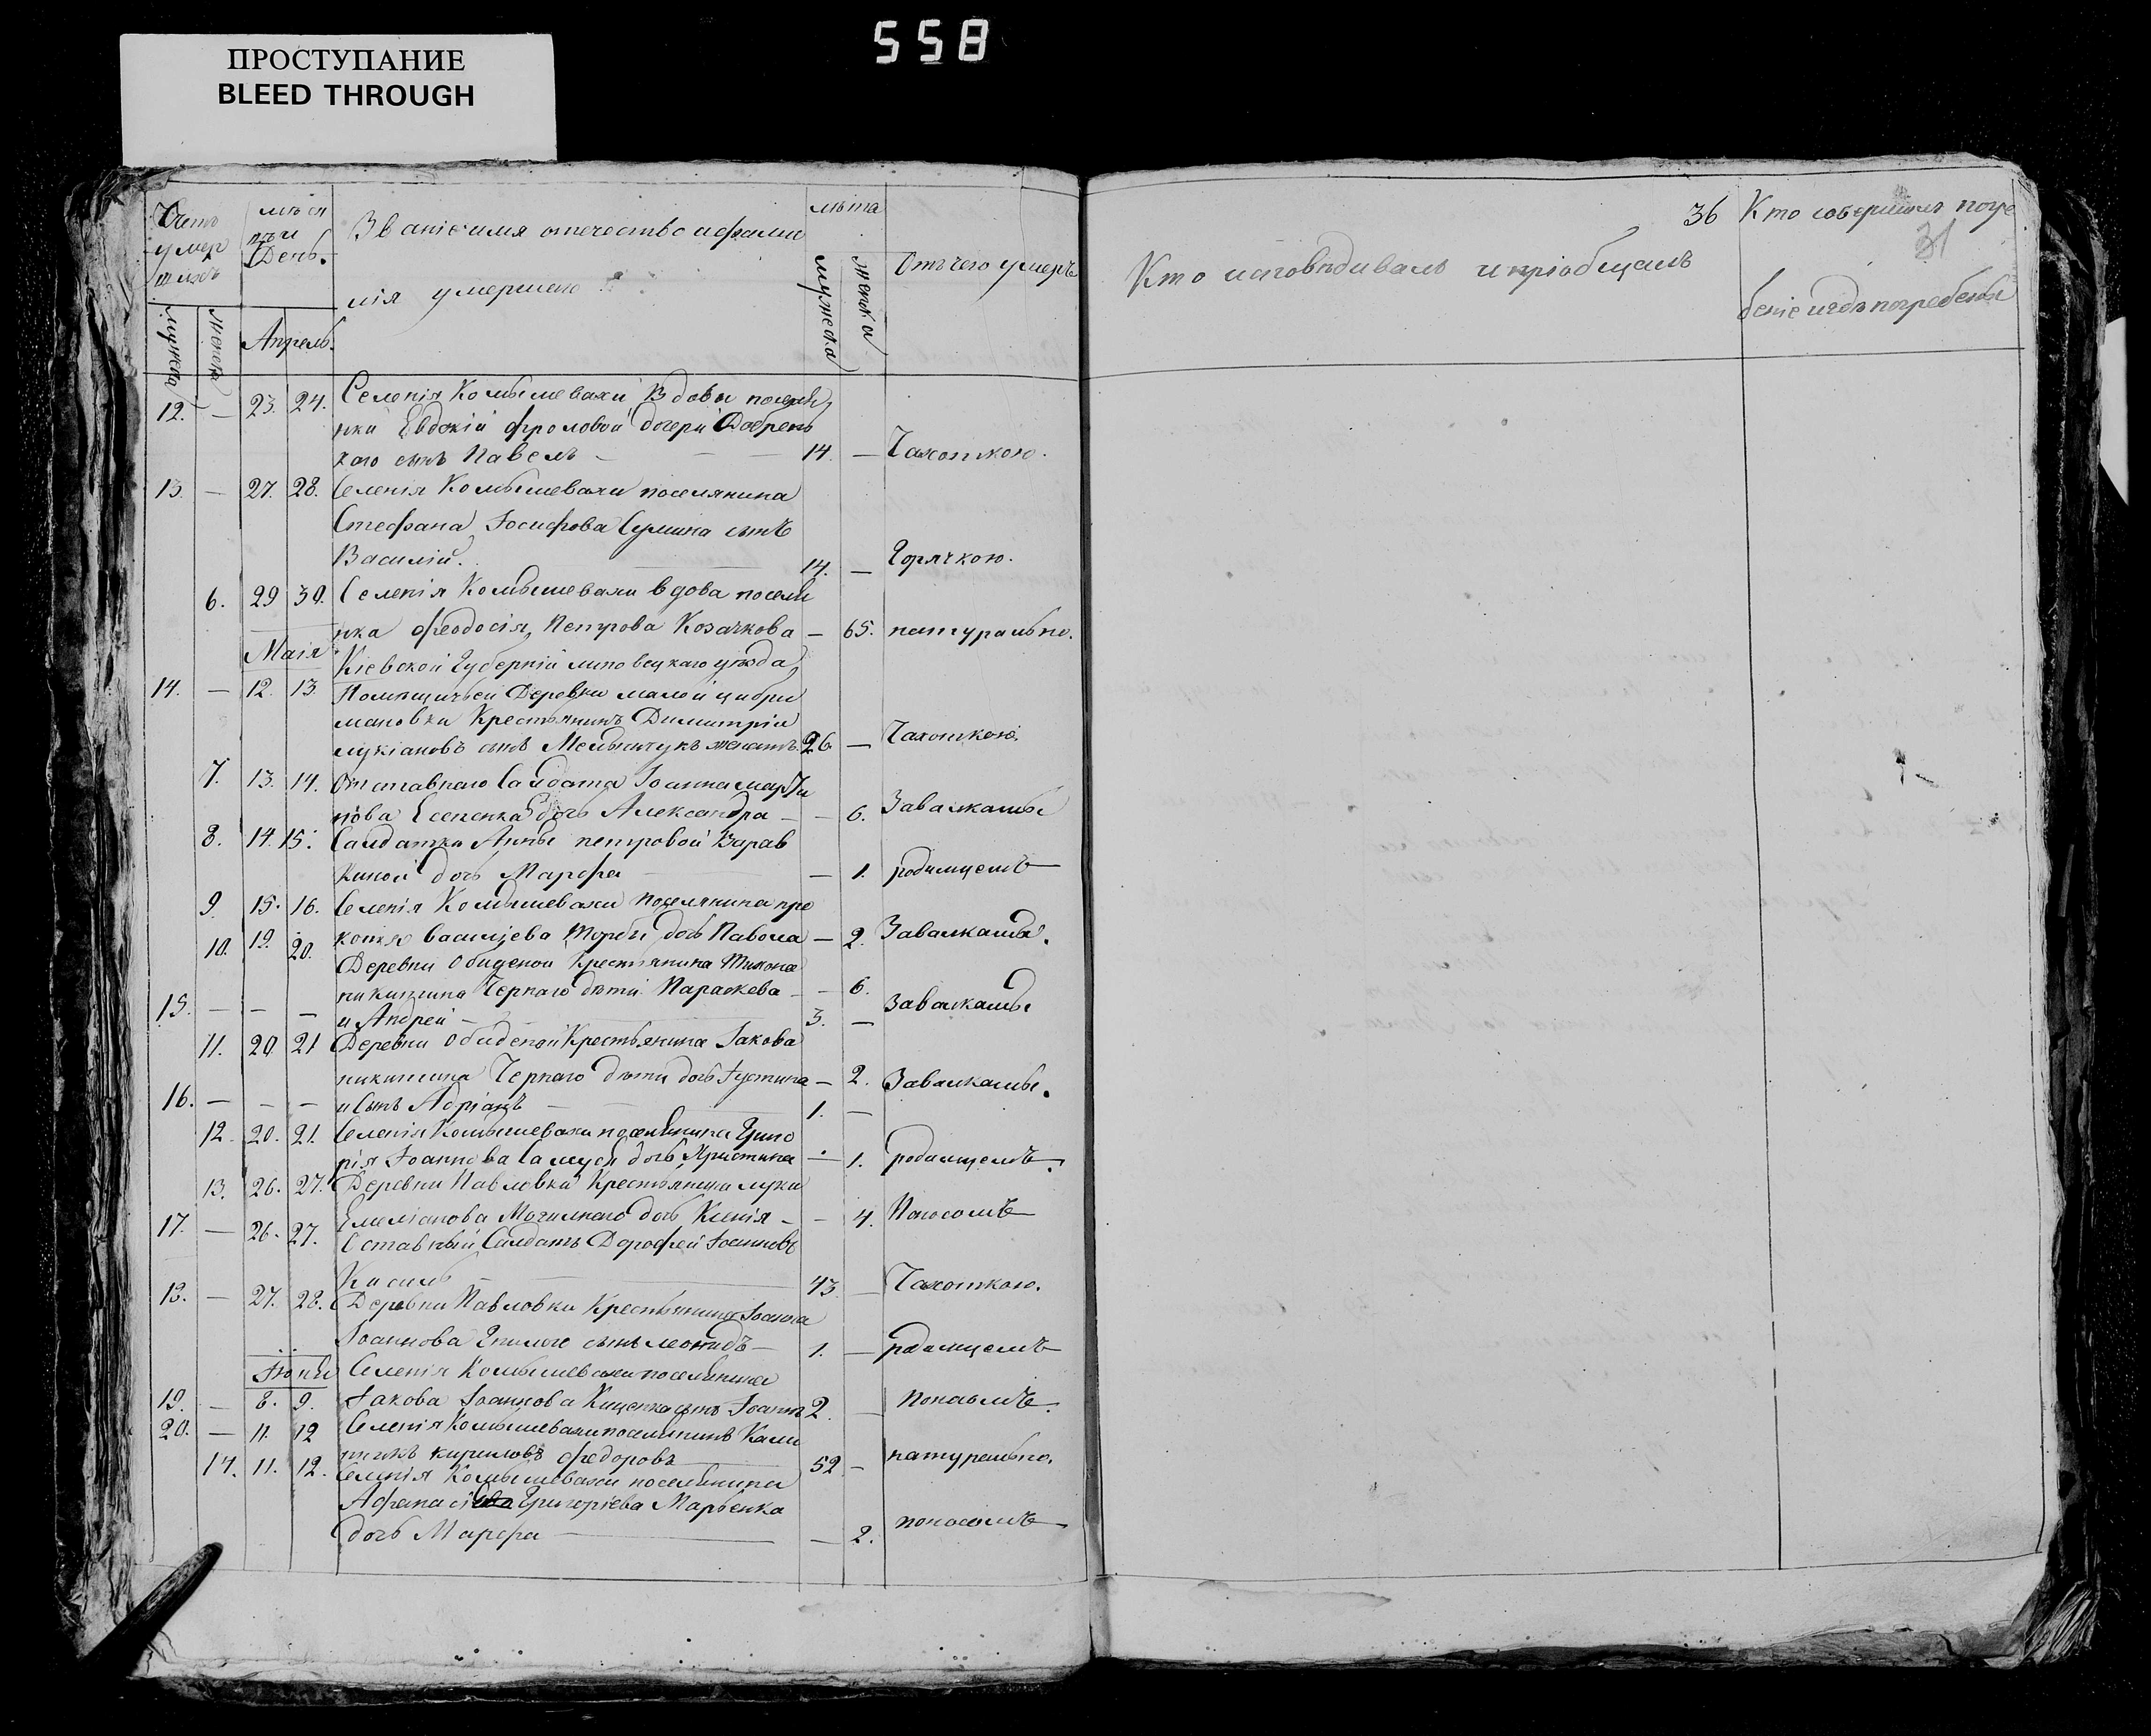 558
ПРОСТУПАНИЕ
BLEED THROUGH
Счетъ умер шихъ
мѣся цъ и День.
Званіе имя отечество и фами
лія умершаго
лѣта
Отъ чего умеръ
мужеска
женска
Апрель.
мужеска
женска
12. — 23. 24. Селенія Комышевахи Вдовы поселян
ки Евдокіи Фроловой дочери Добрень
каго сынъ Павелъ — 14. — Чахоткою.
13. — 27. 28. Селенія Комышевахи поселянина
Стефана Іосифова Сумина сынъ
Василій. 14. — Горячкою.
6. 29 30. Селенія Комышевахи вдова поселян
ка Феодосія Петрова Козачкова — 65. натурально.
Маія
Кіевской Губерніи липовецкаго уѣзда
14. — 12. 13 Помѣщичьей Деревни малой
мановки Крестьянинъ Димитрій
лукіановъ сынъ Мельничукъ женатъ. 26 — Чахоткою.
7. 13. 14. Отставнаго Салдата Іоанна Марти
нова Есепенка дочь Александра — — 6. Завалкамы
8. 14. 15. Салдатки Анны петровой Варав
киной дочь Марфа — 1. родимцемъ
9. 15. 16. Селенія Комышевахи поселянина про
кофія васильева Торбы дочь Павола — 2. Завалкамы.
10. 19. 20. Деревни Обиденой Крестьянина Тихона
никитина Чернаго дѣти Параскева — — 6.
15. — — — и Андрей — 3. — Завалкамы
11. 20 21 Деревни Обиденой Крестьянина Іакова
никитина Чернаго дѣти дочь Іустина — 2. Завалкамы.
16. — — — и Сынъ Адріанъ — 1. —
12. 20. 21. Селенія Комышевахи поселянина Григо
рія Іоаннова дочь Христина — 1. родимцемъ.
13. 26. 27. Деревни Павловки Крестьянина луки
Емеліанова Могилнаго дочь Ксенія — — 4. Поносомъ
17. — 26. 27. Отставный Салдатъ Дорофей Іоанновъ
Кисиль 43 — Чахоткою.
18. — 27. 28. Деревни Павловки Крестьянина Іоанна
Іоаннова Гнилого сынъ леонидъ — 1. — родимцемъ
Іюнь
Селенія Комышевахи поселянина
19. — 8. 9. Іакова Іоаннова Кищенка сынъ Іоаннъ 2. — поносомъ.
20. — 11. 12 Селенія Комышевахи поселянинъ Кали
никъ кириловъ федоровъ 52 — натурально.
14. 11. 12. Селенія Комышевахи поселянина
Афанасія Григоріева Марченка
дочь Марфа — 2. поносомъ
36
31
Кто исповѣдивалъ и пріобщалъ
Кто совершилъ погре
беніе и гдѣ погребены